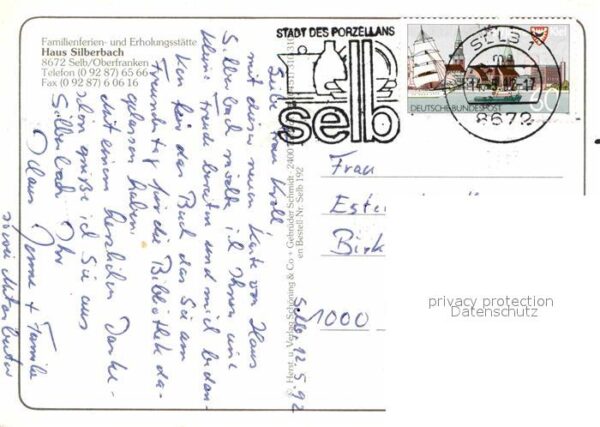 Familienferien- und Erholungsstätte
Haus Silberbach
8672 Selb/Oberfranken
Telefon (0 92 87) 65 66
Fax (0 92 87) 6 06 16
STADT DES PORZELLANS
selb
SELB 1
8672
60
DEUTSCHE BUNDESPOST
Selb, 12.5.92
Liebe Frau Kroll,
mit dieser neuen Karte von Haus
Silberbach möchte ich Ihnen eine
kleine Freude bereiten und mich bedan-
ken für das Buch das Sie am
für die Bibliothek da-
gelassen haben.
Mit einem herzlichen Danke-
schön grüße ich Sie aus
Silberbach Ihr
+ Familie
sowie Mitarbeiter
Horst u. Verlag Schöning & Co + Gebrüder Schmidt, 2400
en Bestell-Nr. Selb 192
Frau
Ester
Birk
1000
privacy protection
Datenschutz